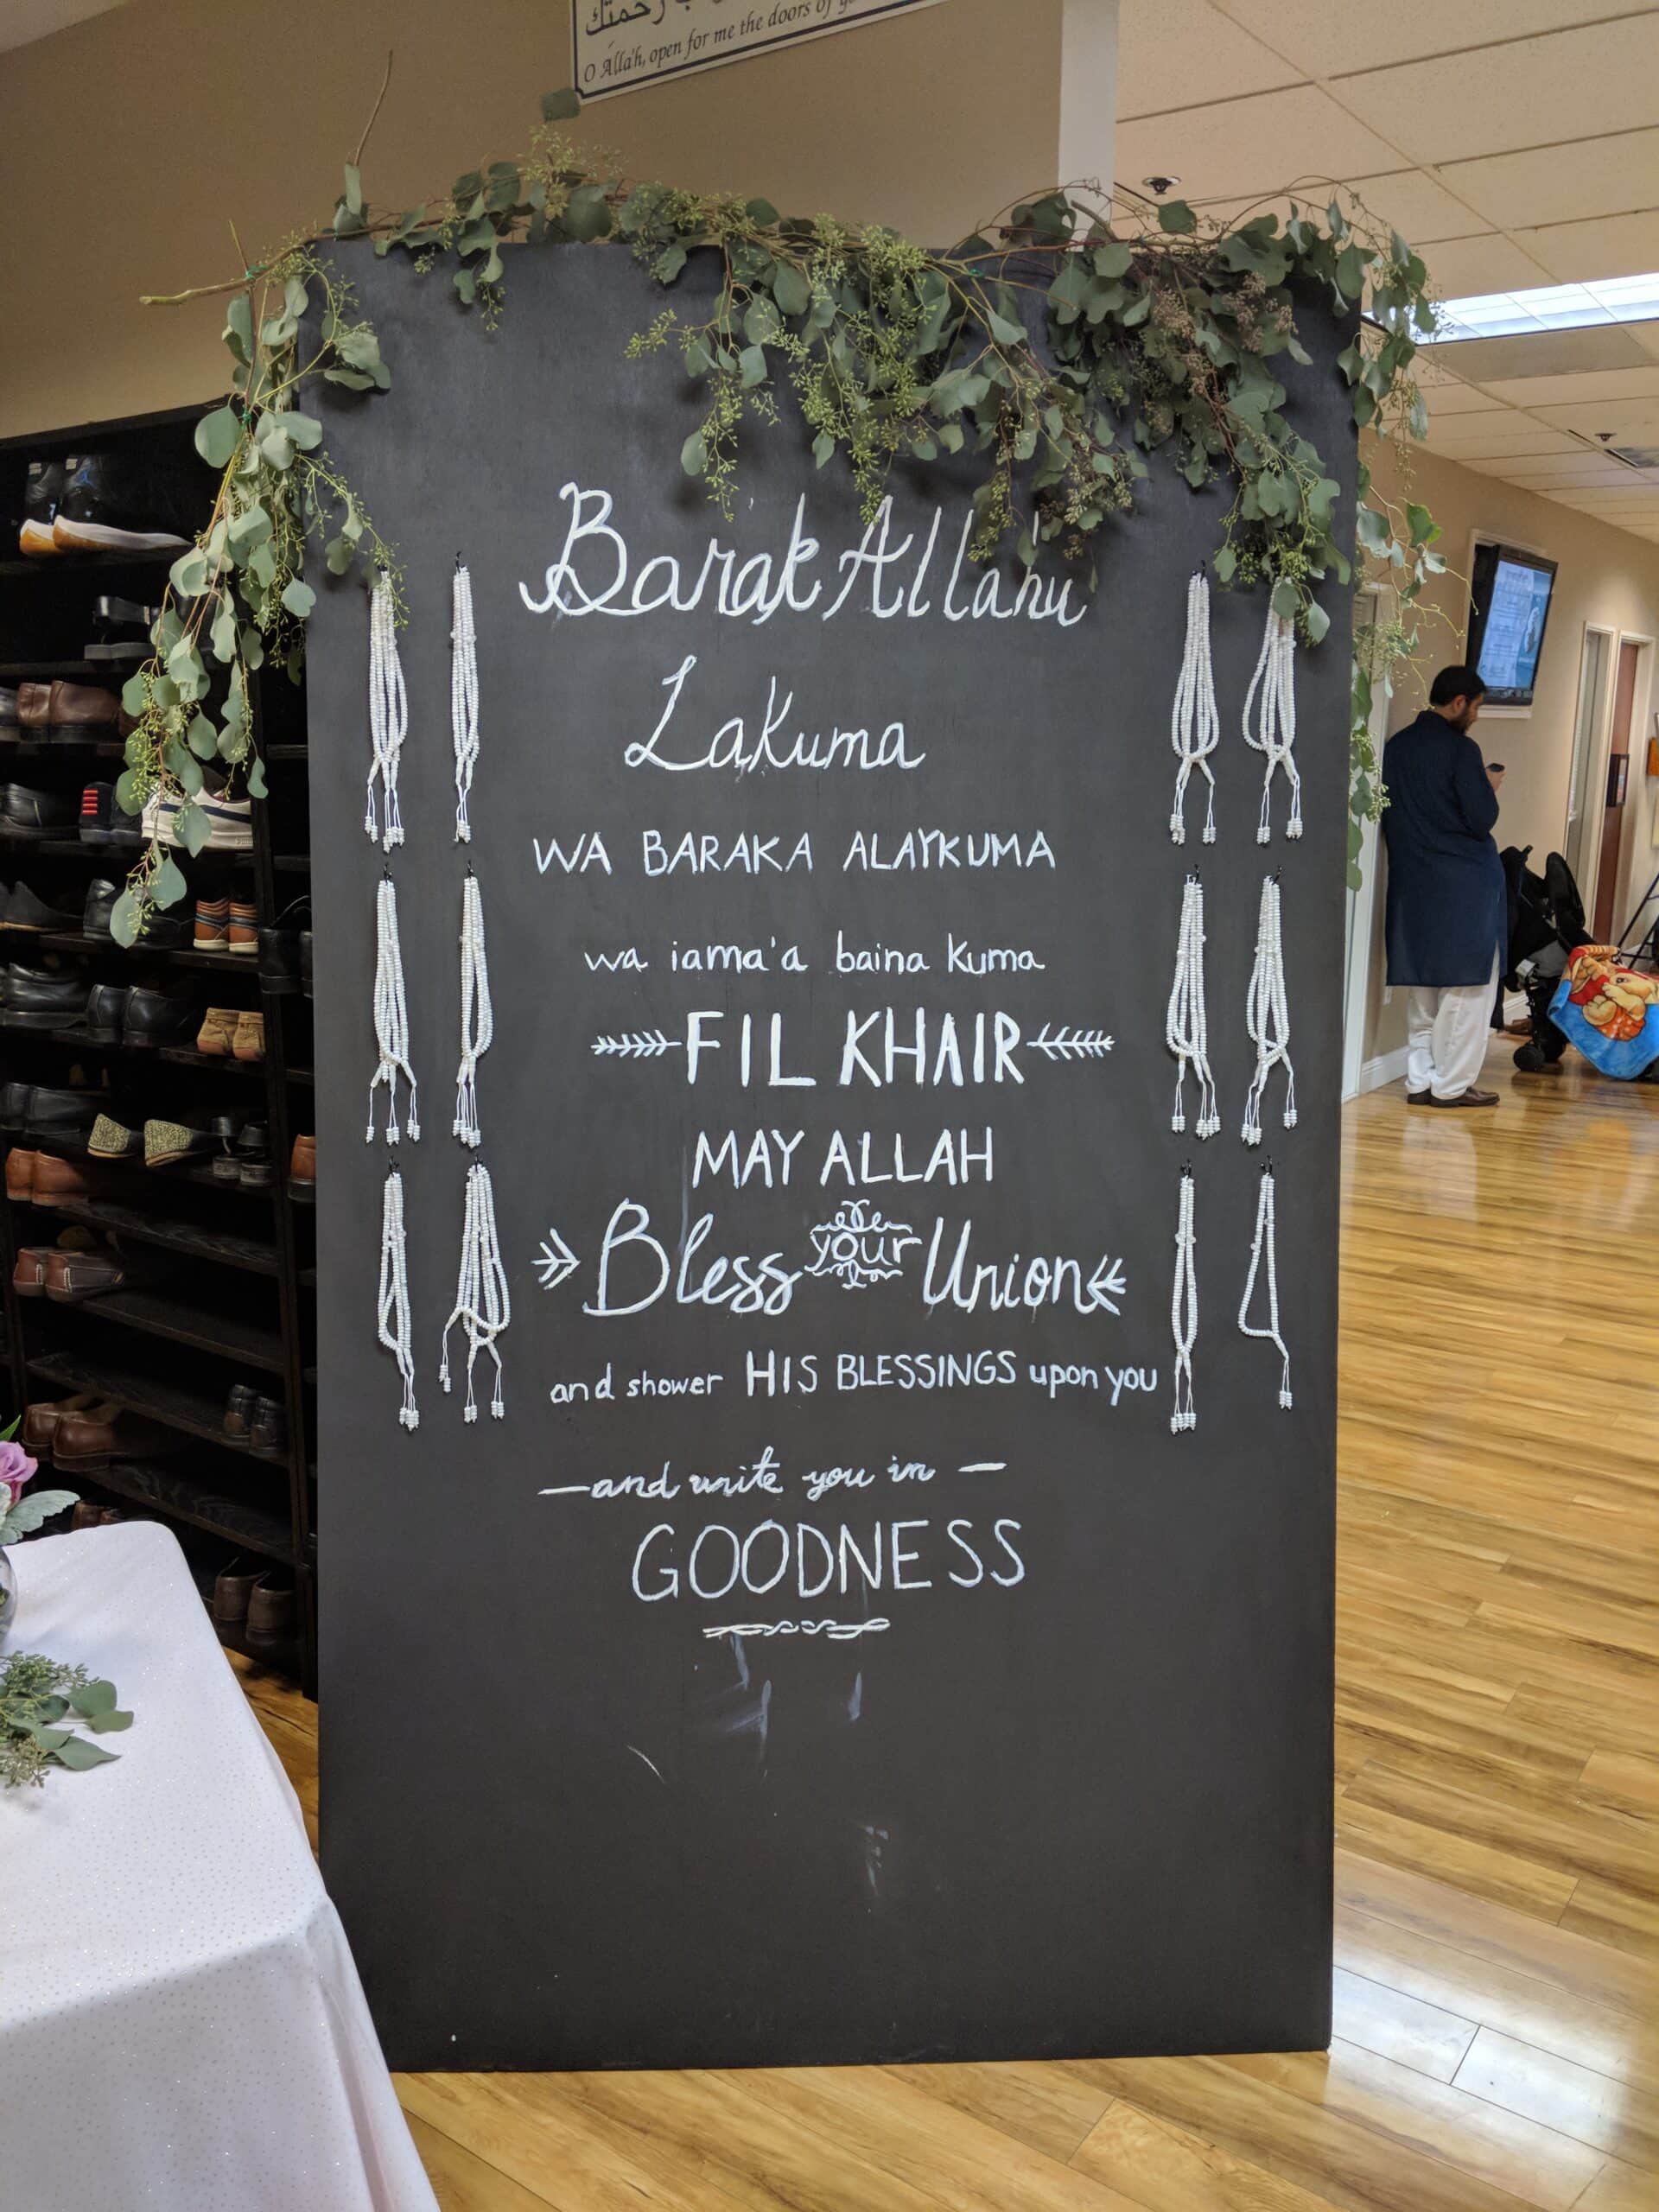 رحمتك
O Allah, open for me the doors of
Barak Allahu
Lakuma
WA BARAKA ALAYKUMA
wa iama'a baina kuma
FIL KHAIR
MAY ALLAH
Bless your Union
and shower HIS BLESSINGS upon you
—and unite you in—
GOODNESS